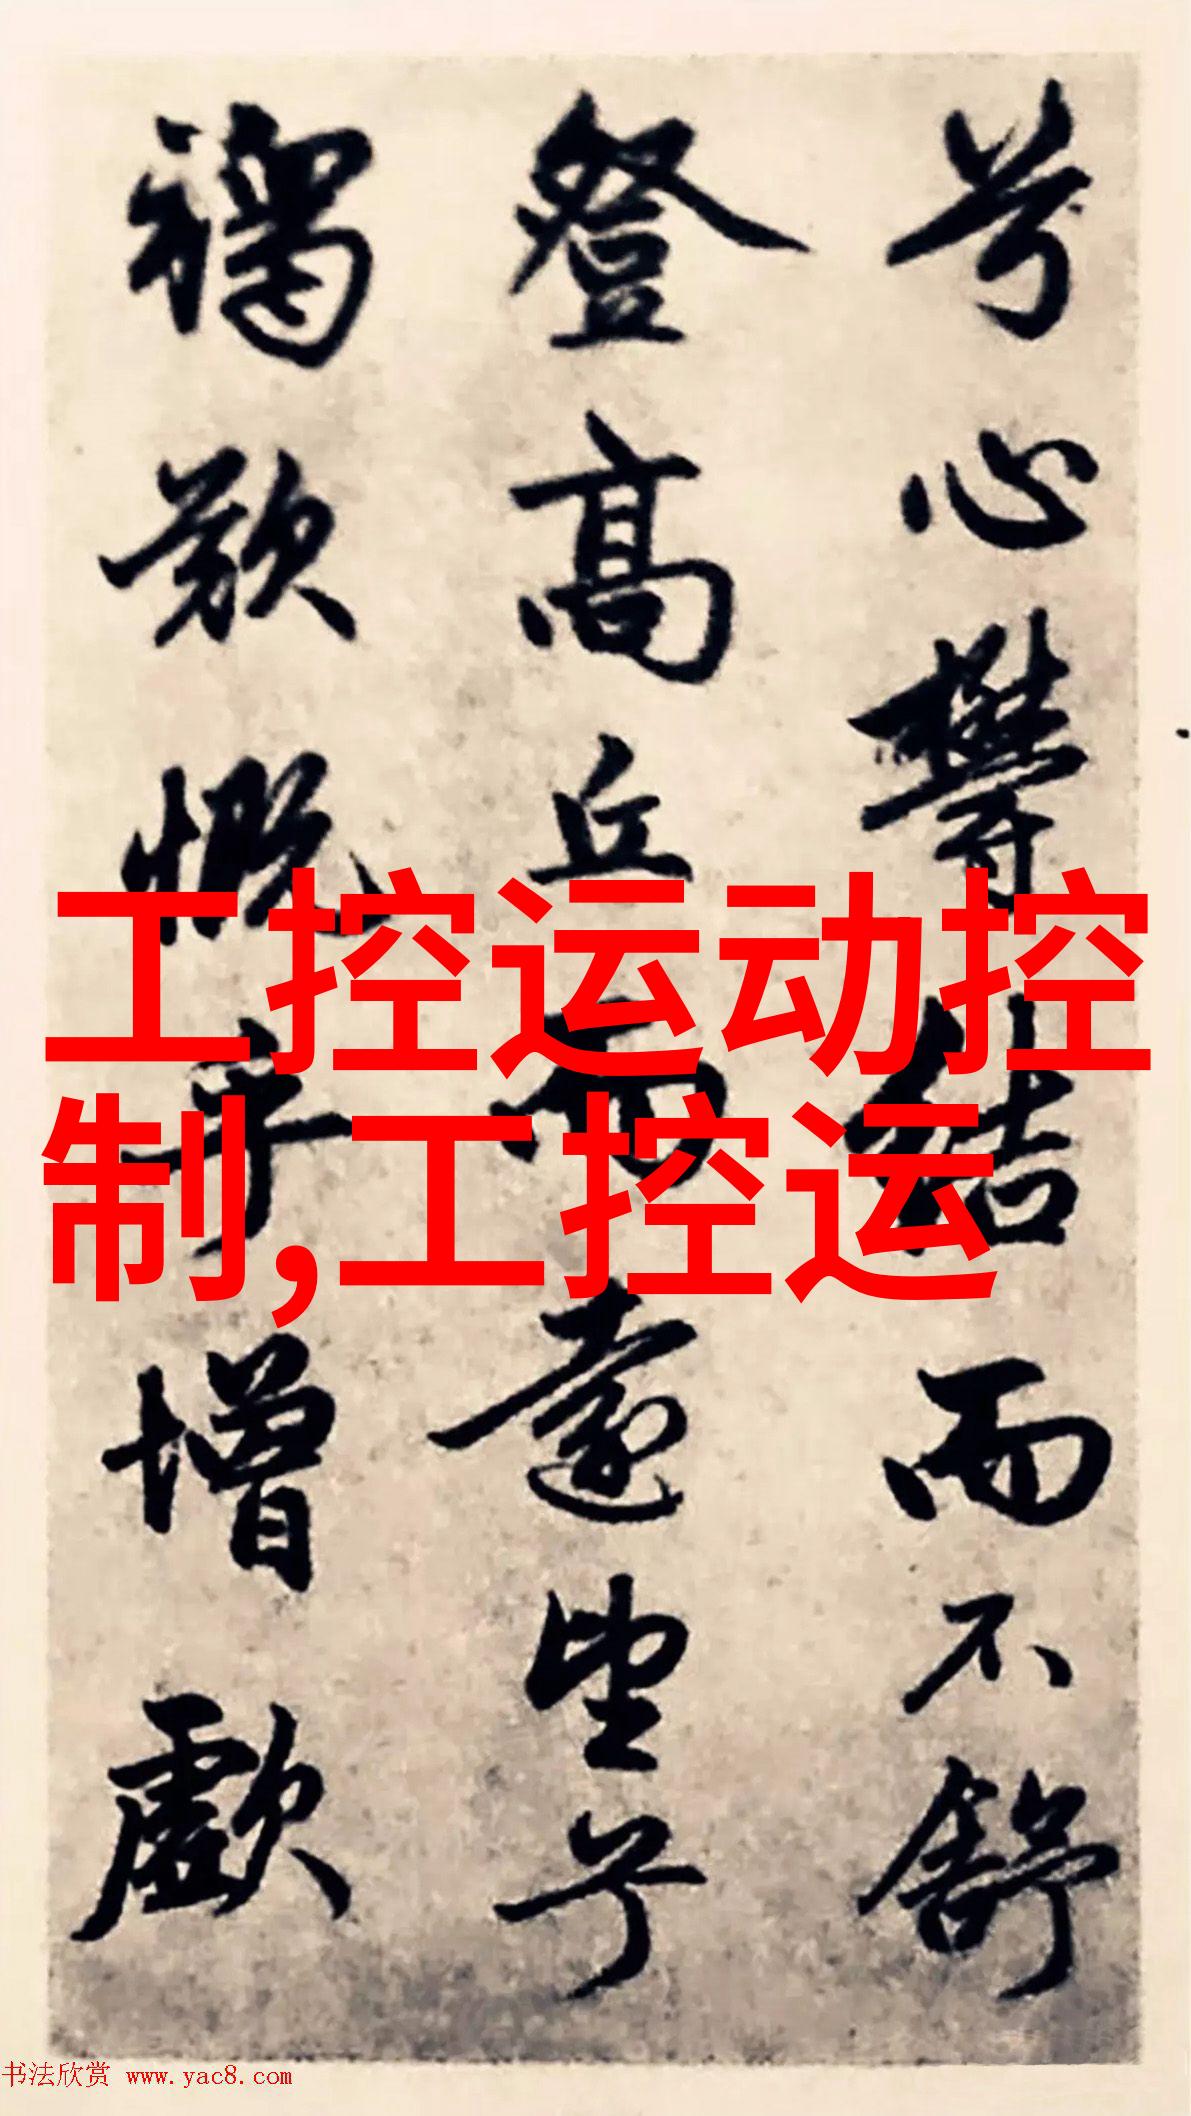 兮心欝結而不舒
登高丘而遠望兮
慨乎增歔
工控运动控
制,工控运
书法欣赏 www.yac8.com